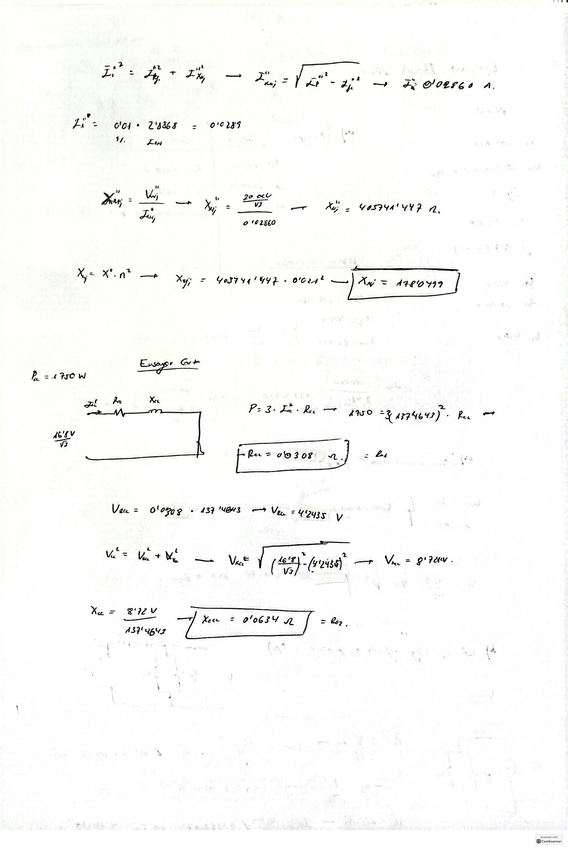 I₀''² = I_fj''² + I_xμj''² → I_xμj'' = √(I₀''² - I_fj''²) → I_μ'' = 0'02860 A.
I₀'' = 0'01 · 2'8868 = 0'0289
1% I₂N
X_μj'' = V_μj'' / I_μj'' → X_μj'' = (20 000/√3) / 0'02860 → X_μj'' = 403741'447 Ω.
X_μj = X'' · n² → X_μj = 403741'447 · 0'021² → X_μj = 178'0499
Ensayo Cort
Pcc = 1750 W
Rcc Xcc
16'8 V / √3
P = 3 · I² · Rcc → 1750 = 3(137'4643)² · Rcc →
Rcc = 0'0308 Ω. =
V_Rcc = 0'0308 · 137'4643 → V_Rcc = 4'2435 V
Vcc² = V_Rcc² + V_Xcc² → V_Xcc = √((16'8/√3)² - (4'2435)²) → V_Xcc = 8'72 V.
Xcc = 8'72 V / 137'4643 → Xcc = 0'0634 Ω =
Scanned with
CamScanner